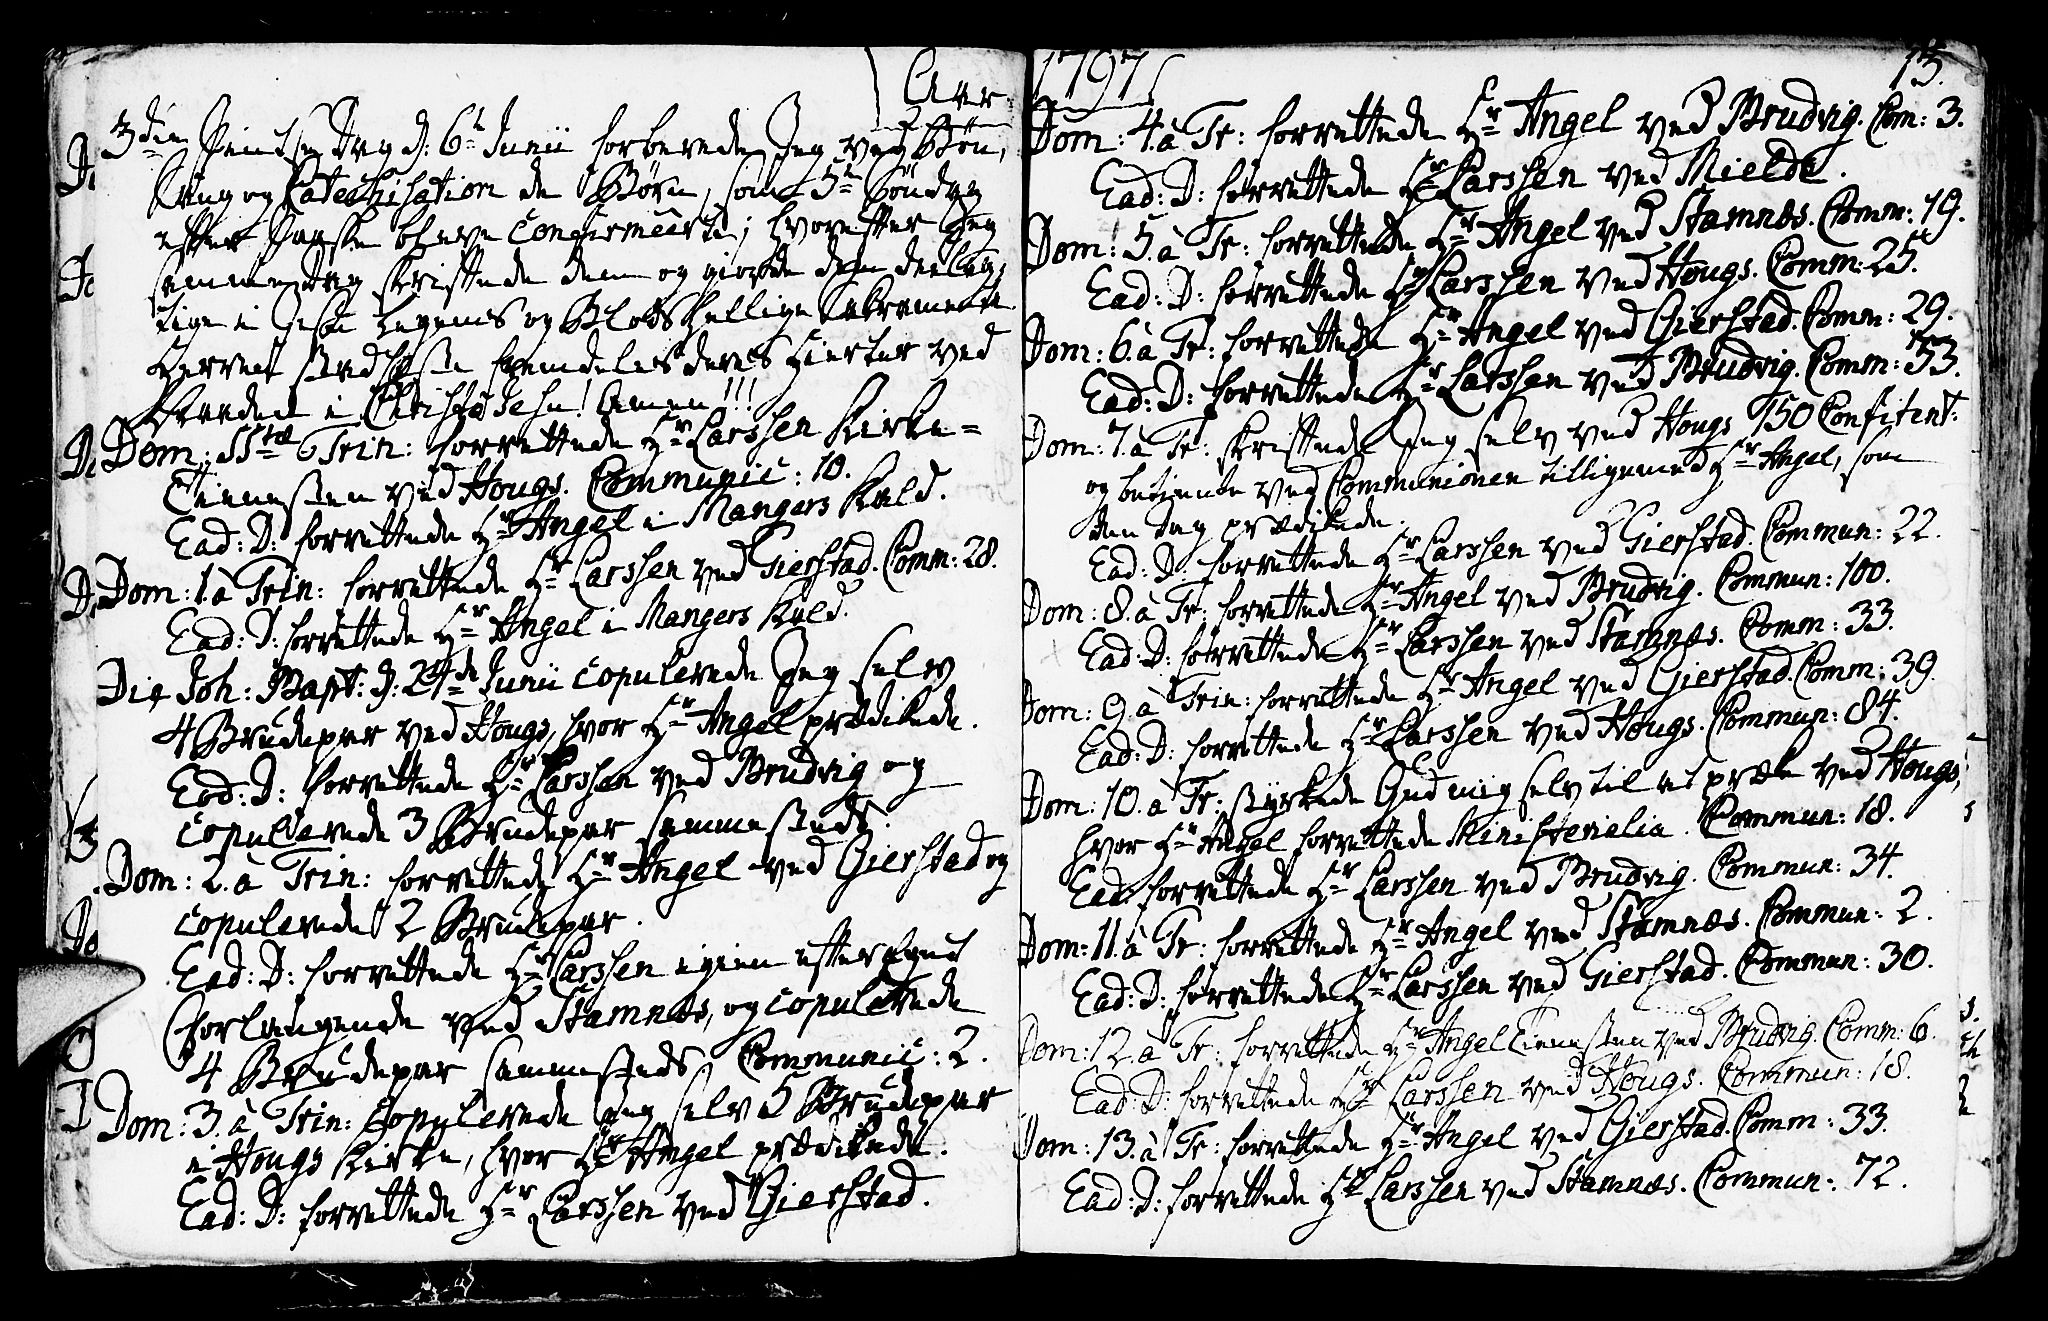 Aar
3die Pintse Dag d: 6te Junii forberede Jeg ved Bøn,
Sang og Catechisation de Børn, som 5te Søndag
efter Paaske bleve Confirmeerte; hvorefter Jeg
samme Dag skriftede dem og giorde dem deelag-
tige i Jesu Legems og Blods hellige Sakramente
Herren stadfæste fremdeles deres Hierter ved
Naaden i Christo Jesu! Amen!!!
Dom: SStæ Trin: forrettede Hr Larssen Kirke=
Tienesten ved Hougs. Communic: 10.
Ead: D: forrettede Hr Angel i Mangers Kald.
Dom: 1. à Trin: forrettede Hr Larssen ved Gierstad. Comm: 28.
Ead: D: forrettede Hr Angel i Mangers Kald.
Die Joh: Bapt: d: 24de Junii copulerede Jeg selv
4 Brudepar ved Hougs, hvor Hr Angel prædikede.
Ead: D: forrettede Hr Larssen ved Brudvig og
copulerede 3 Brudepar sammesteds.
Dom: 2. à Trin: forrettede Hr Angel ved Gierstad og
copulerede 2 Brudepar.
Ead: D: forrettede Hr Larssen igien efter eget
Forlangende ved Stamnæs, og copulerede
4 Brudepar sammesteds. Communic: 2.
Dom: 3. à Trin: copulerede Jeg selv 5 Brudepar
i Hougs Kirke, hvor Hr Angel prædikede.
Ead: D: forrettede Hr Larssen ved Gierstad.
1797
13.
Dom: 4. à Tr: forrettede Hr Angel ved Brudvig. Com: 3.
Ead: D: forrettede Hr Larssen ved Mielde.
Dom: 5. à Tr: forrettede Hr Angel ved Stamnæs. Comm: 19.
Ead: D: forrettede Hr Larssen ved Hougs. Comm: 25.
Dom: 6. à Tr: forrettede Hr Angel ved Gierstad. Comm: 29.
Ead: D: forrettede Hr Larssen ved Brudvig. Comm: 53.
Dom: 7. à Tr: skriftede Jeg selv ved Hougs 150 Confitent:
og betiente ved Communionen tilligemed Hr Angel, som
den Dag prædikede.
Ead: D: forrettede Hr Larssen ved Gierstad. Commun: 22.
Dom: 8. à Tr: forrettede Hr Angel ved Brudvig. Commun: 100.
Ead: D: forrettede Hr Larssen ved Stamnæs. Comm: 33.
Dom: 9. à Trin: forrettede Hr Angel ved Gierstad. Comm: 39.
Ead: D: forrettede Hr Larssen ved Hougs. Commun: 84.
Dom: 10. à Tr: styrkede Gud mig selv til at præke ved Hougs,
hvor Hr Angel forrettede Ministerialia. Commun: 18.
Ead: forrettede Hr Larssen ved Brudvig. Commun: 34.
Dom: 11. à Tr: forrettede Hr Angel ved Stamnæs. Commun: 2.
Ead: D: forrettede Hr Larssen ved Gierstad. Commun: 30.
Dom: 12. à Tr: forrettede Hr Angel Tienesten ved Brudvig. Comm: 6.
Ead: D: forrettede Hr Larssen ved Hougs. Commun: 18.
Dom: 13. à Tr: forrettede Hr Angel ved Gierstad. Comm: 33.
Ead: D: forrettede Hr Larssen ved Stamnæs. Commun: 72.